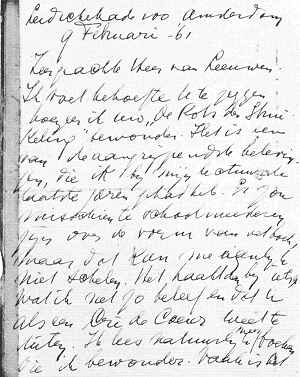 Leidschekade 100 Amsterdam
9 Februari - 61
Zeer geachte Heer van Leeuwen.
Ik voel behoefte U te zeggen
hoezeer ik uw "De Rots der Strui-
keling" bewonder. Het is een
van de aangrijpendste belevin-
gen, die ik bij mijn lectuur de
laatste jaren gehad heb. Er zou
misschien te schoolmeesteren
zijn over de vorm van het boek,
maar dat kan me eigenlijk
niet schelen. Het haalt er bij
wat ik net zo beleef en dat U
als een Cri de Coeur weet te
uiten. Ik lees natuurlijk meer boeken
die ik bewonder. Vaak is het